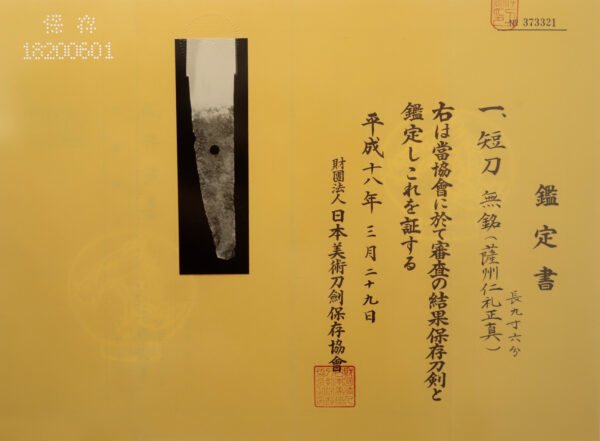 保存
18200601
№ 373321
鑑定書
一、短刀 無銘(薩州仁礼正真)
長九寸六分
右は當協會に於て審査の結果保存刀剣と
鑑定しこれを証する
平成十八年 三月二十九日
財團法人 日本美術刀劍保存協會